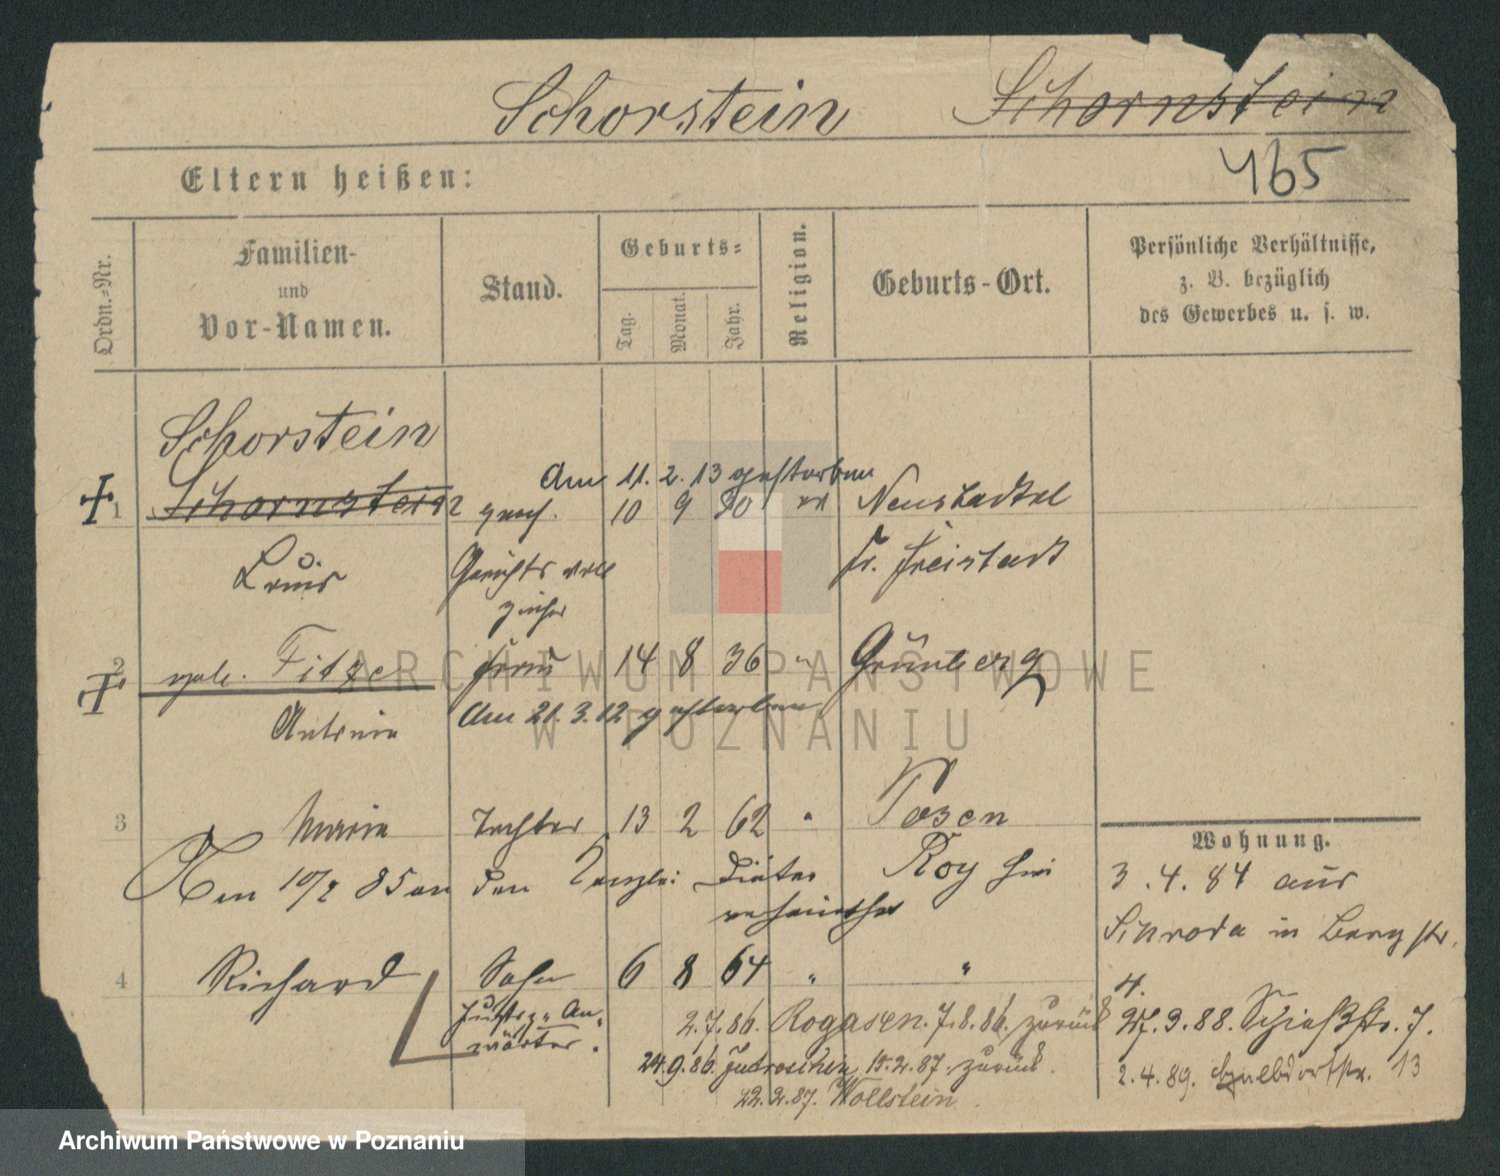 Schorstein Schornstein
465
Eltern heißen:
Ordn.-Nr.
Familien-
und
Vor-Namen.
Stand.
Geburts-
Tag.
Monat.
Jahr.
Religion.
Geburts-Ort.
Persönliche Verhältnisse,
z. B. bezüglich
des Gewerbes u. s. w.
Schorstein
Am 11. 2. 13 gestorben
1 Schornstein 10 9 Neustädtel
Louis Gerichts voll Kr. Freistadt
zieher
2 geb. Fitze Frau 14 8 36 " Grünberg
Antonie Am 21. 3. 12 gestorben
3 Maria Tochter 13 2 62 " Posen
Wohnung.
Am 10/2 85 an den Kanzlei Diätar Roy
verheirathet
3. 4. 84 aus
Schroda in Bergstr.
4.
4 Richard Sohn 6 8 64 " "
An-
wärter.
2.7.86. Rogasen. 7.8.86. zurück
27.3.88. Schießstr. 7.
24.9.86. Jutroschin, 15.2.87. zurück.
2.4.89. Halbdorfstr. 13
22.2.87. Wollstein
ARCHIWUM PAŃSTWOWE
W POZNANIU
Archiwum Państwowe w Poznaniu